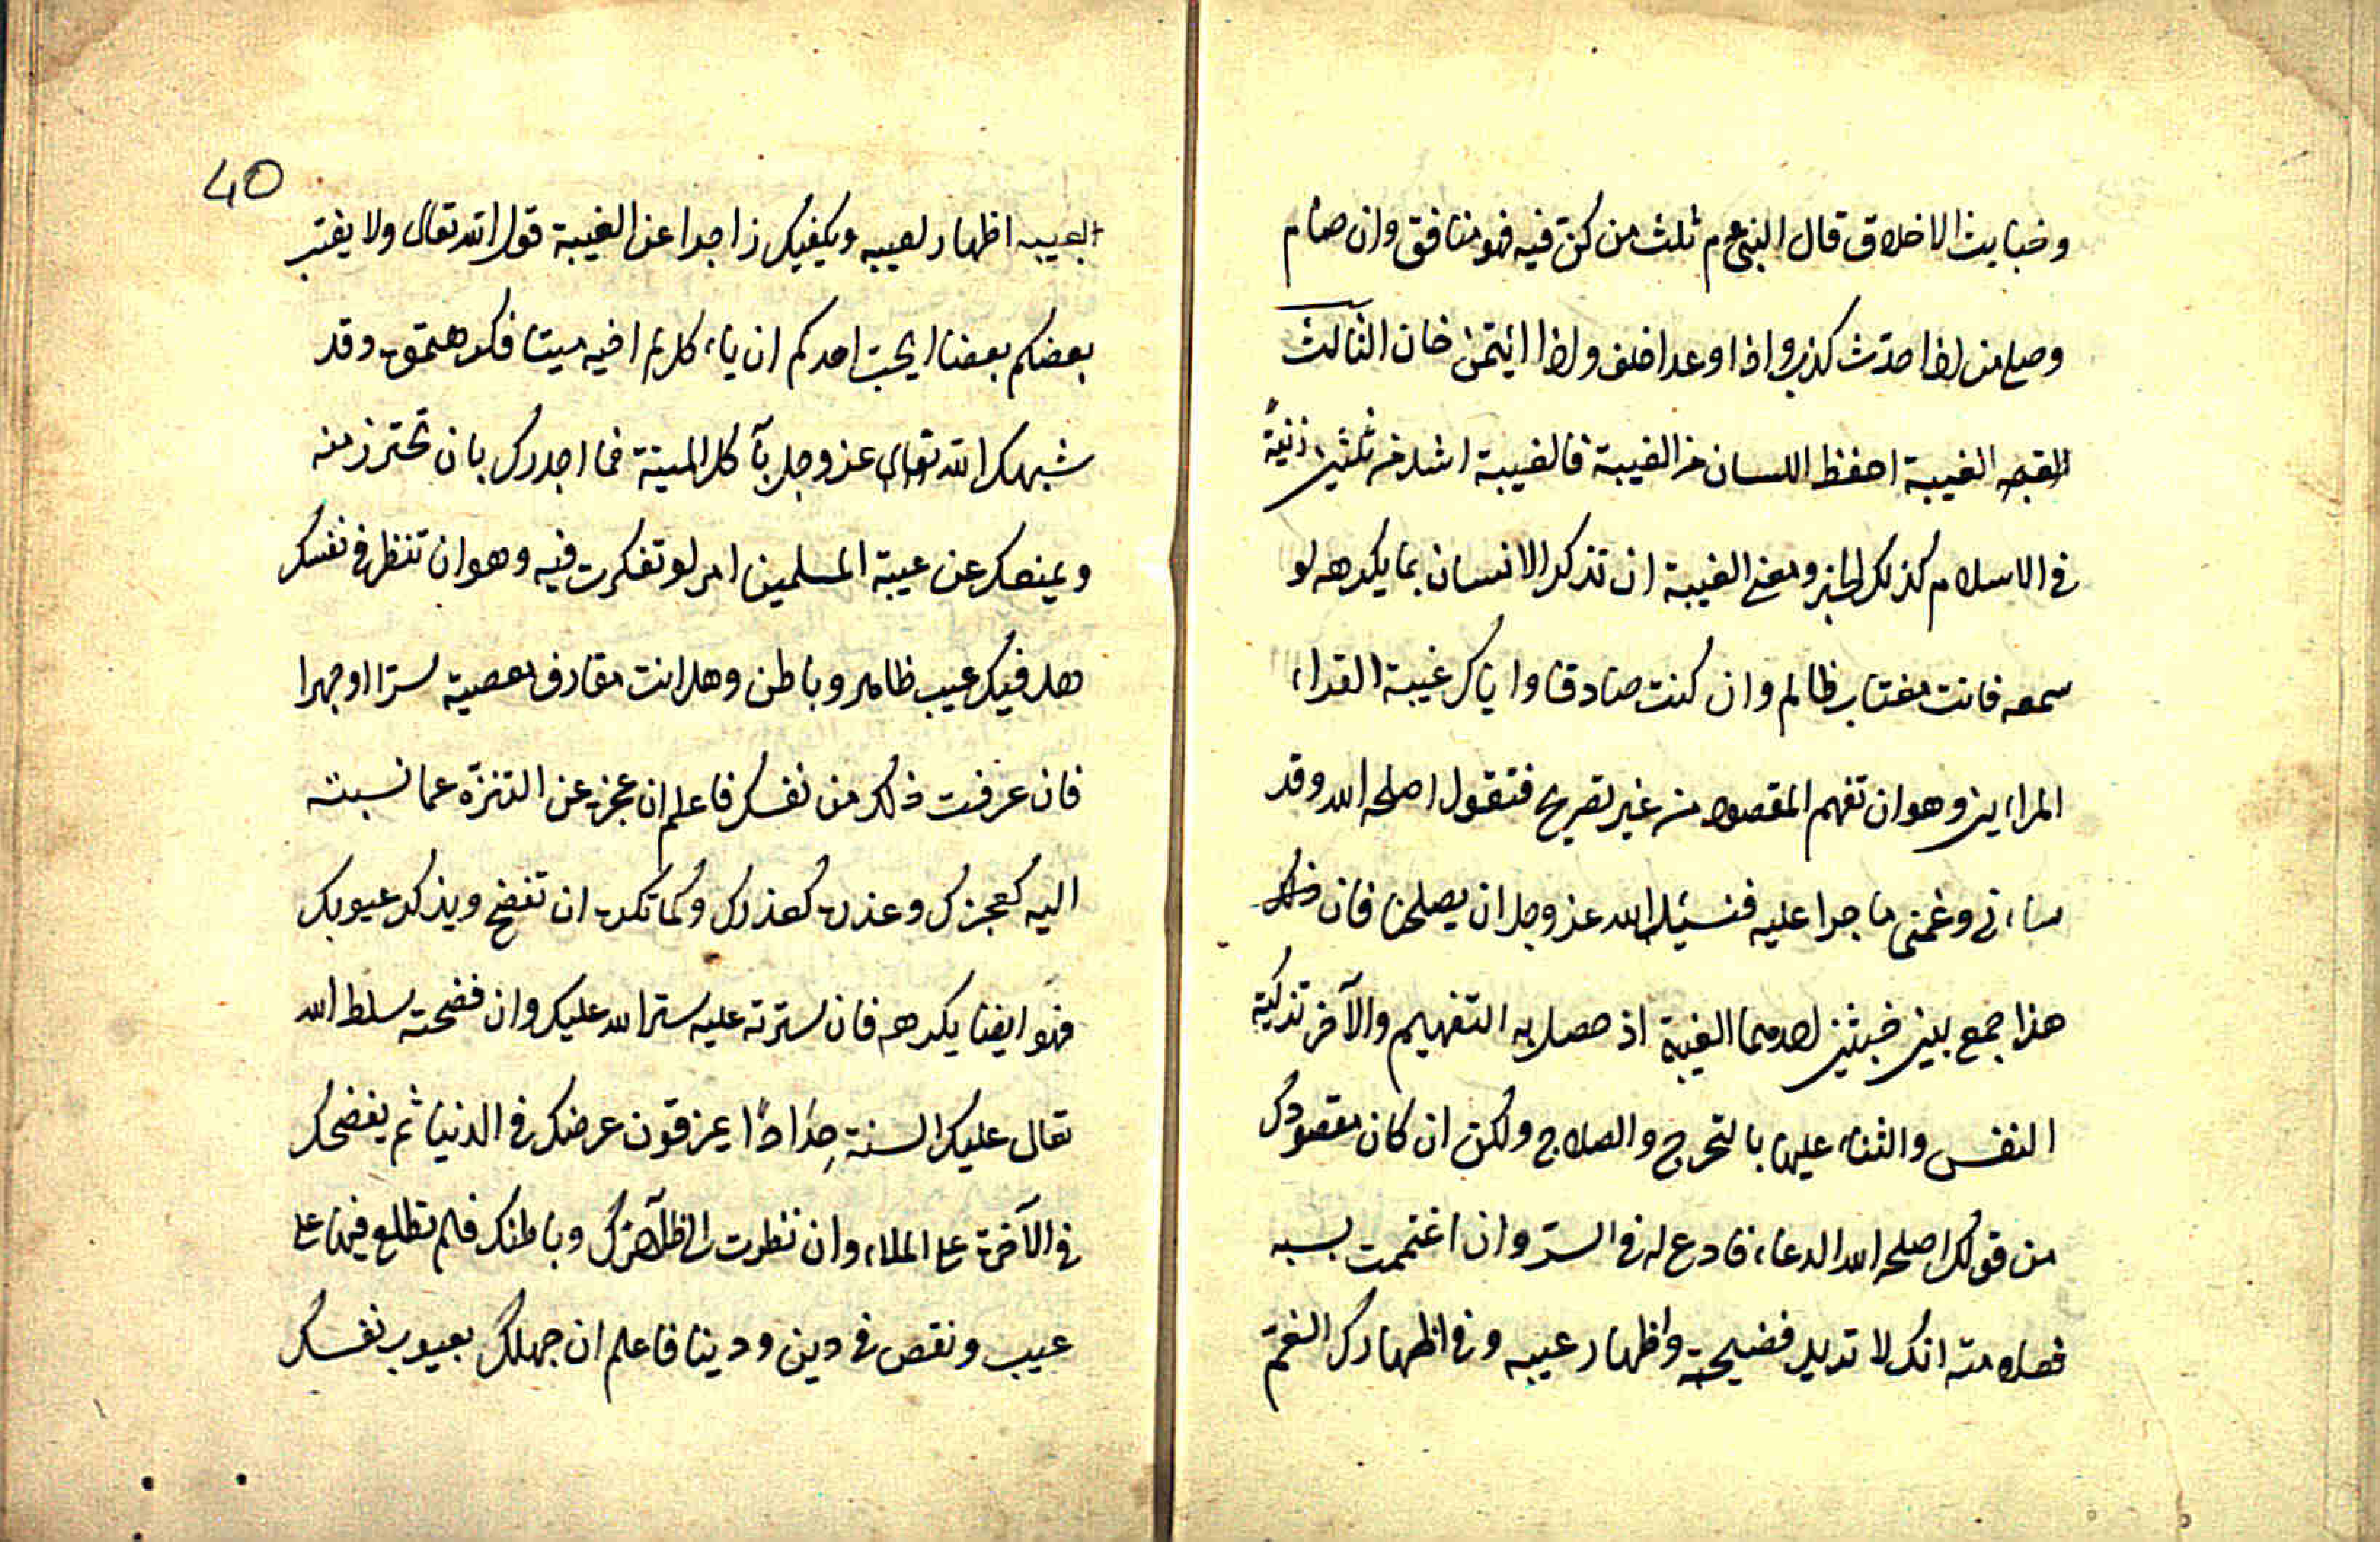 وخبايث الاخلاق قال النبى عم ثلث من كن فيه فهو منافق وان صام
وصلى من اذا حدّث كذب واذا وعد اخلف واذا ائيتمن خان الثالث
الغيبة احفظ اللسان من الغيبة فالغيبة اشد من ثلثين زنيةً
فى الاسلام كذلك الخبر ومعنى الغيبة ان تذكر الانسان بما يكرهه لو
سمعه فانت مغتاب ظالم وان كنت صادقا واياك غيبة القراء
المراءين وهو ان تفهم المقصود من غير تصريح فتقول اصلحه الله وقد
ساءنى وغمنى ما جرا عليه فنسئل الله عز وجل ان يصلحنا فان
هذا جمع بين خبثين احدهما الغيبة اذ حصل به التفهيم والآخر تذكية
النفس والثناء عليها بالتحرج والصلاح ولكن ان كان مقصودك
من قولك اصلحه الله الدعاء فادع له فى السرّ وان اغتممت بسببه
فعلامته انك لا تريد فضيحته واظهار عيبه وفى اظهارك الغم
بعيبه اظهار لعيبه ويكفيك زاجرا عن الغيبة قول الله تعالى ولا يغتب
بعضكم بعضا ايحب احدكم ان ياءكل لحم اخيه ميتا فكرهتموه وقد
شبهك الله تعالى عز وجل بآكل الميتة فما اجدرك بان تحترز منه
ويمنعك عن غيبة المسلمين امر لو تفكرت فيه وهو ان تنظر فى نفسك
هل فيك عيب ظاهر وباطن وهل انت مقارف معصية سرّا او جهرا
فان عرفت ذلك من نفسك فاعلم ان عجزه عن التنزّه عما نسبته
اليه كعجزك وعذره كعذرك وكما تكره ان تفضح ويذكر عيوبك
فهو ايضا يكرهه فان سترته عليه ستر الله عليك وان فضحته سلط الله
تعالى عليك السنة حِدَادًا يمزقون عرضك فى الدنيا ثم يفضحك
فى الآخرة على الملاء وان نظرت الى ظاهرك وباطنك فلم تطلع فيها على
عيب ونقص فى دين ودنيا فاعلم ان جهلك بعيوب نفسك